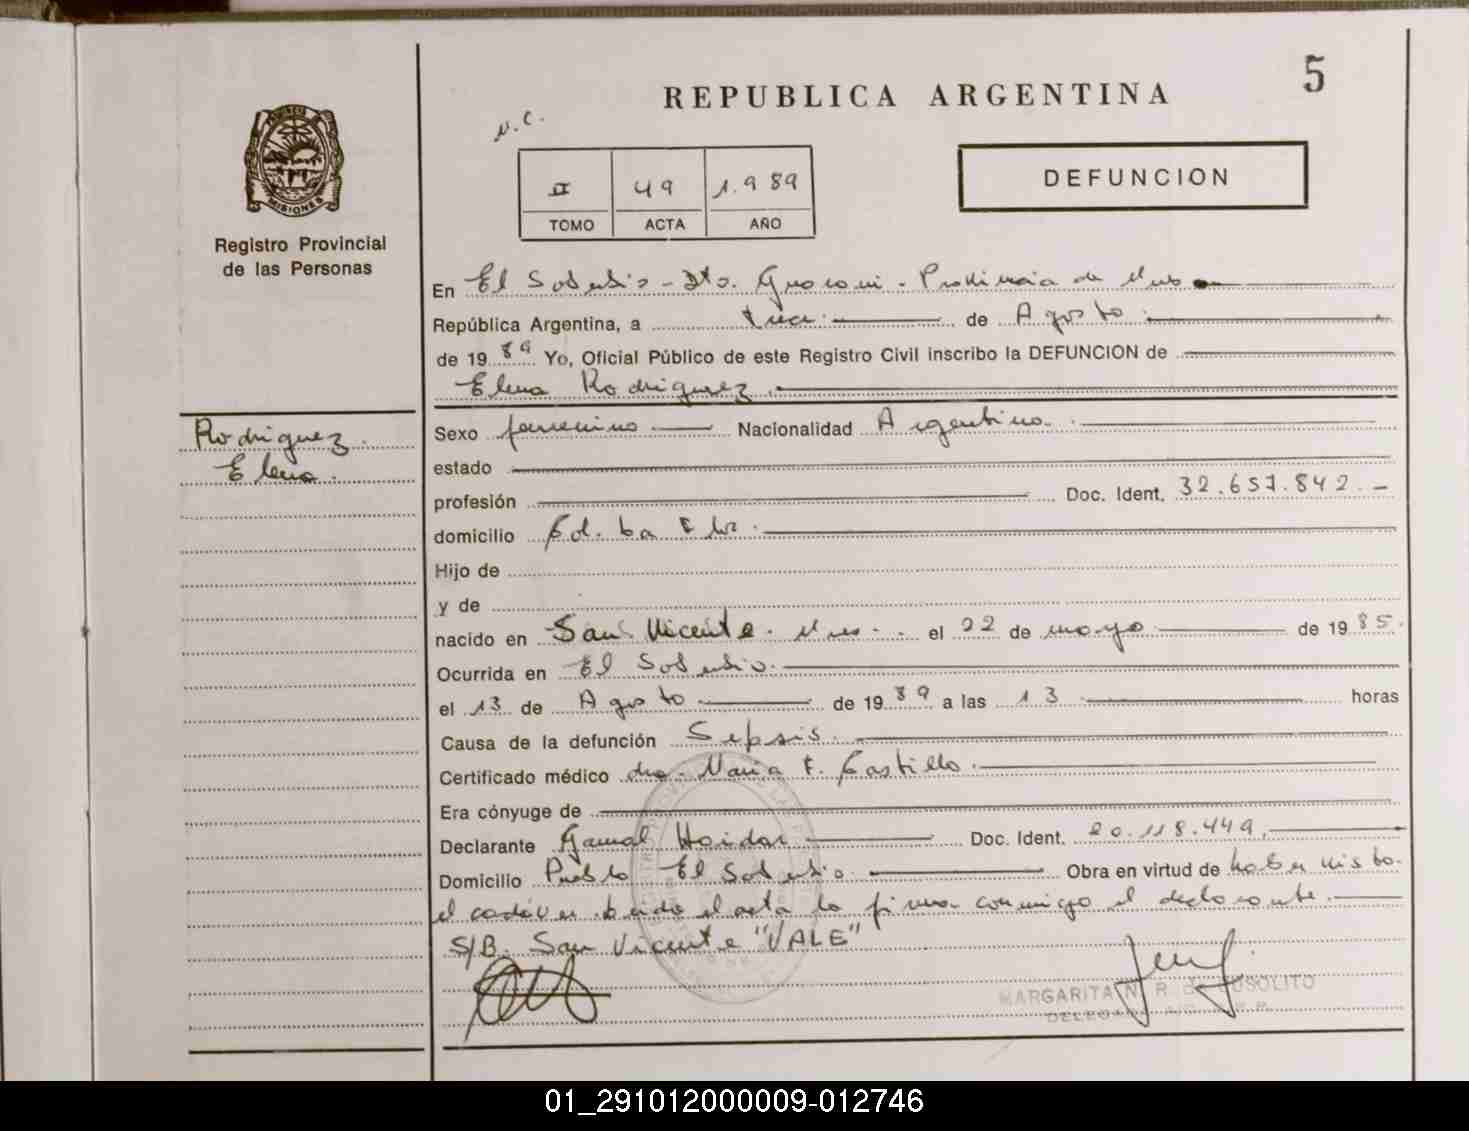 REPUBLICA ARGENTINA
5
MISIONES
Registro Provincial
de las Personas
II 49 1.989
TOMO ACTA AÑO
DEFUNCION
En El Soberbio - Dto. Guarani - Provincia de Mnes
República Argentina, a de Agosto
de 1989 Yo, Oficial Público de este Registro Civil inscribo la DEFUNCION de
Elena Rodriguez.
Rodriguez.
Elena.
Sexo femenino Nacionalidad Argentina.
estado
profesión Doc. Ident. 32.657.842.-
domicilio
Hijo de
y de
nacido en San Vicente. Mnes. el 22 de mayo de 1985.
Ocurrida en El Soberbio.
el 13 de Agosto de 1989 a las 13 horas
Causa de la defunción Sepsis.
Certificado médico dra. Maria F. Castillo.
Era cónyuge de
Declarante Gamal Haidar Doc. Ident. 20.118.449.
Domicilio Pueblo El Soberbio. Obra en virtud de haber visto
el cadáver. el acta la firma conmigo el declarante.
S/B. San Vicente "VALE"
MARGARITA N. R. DE
01_291012000009-012746